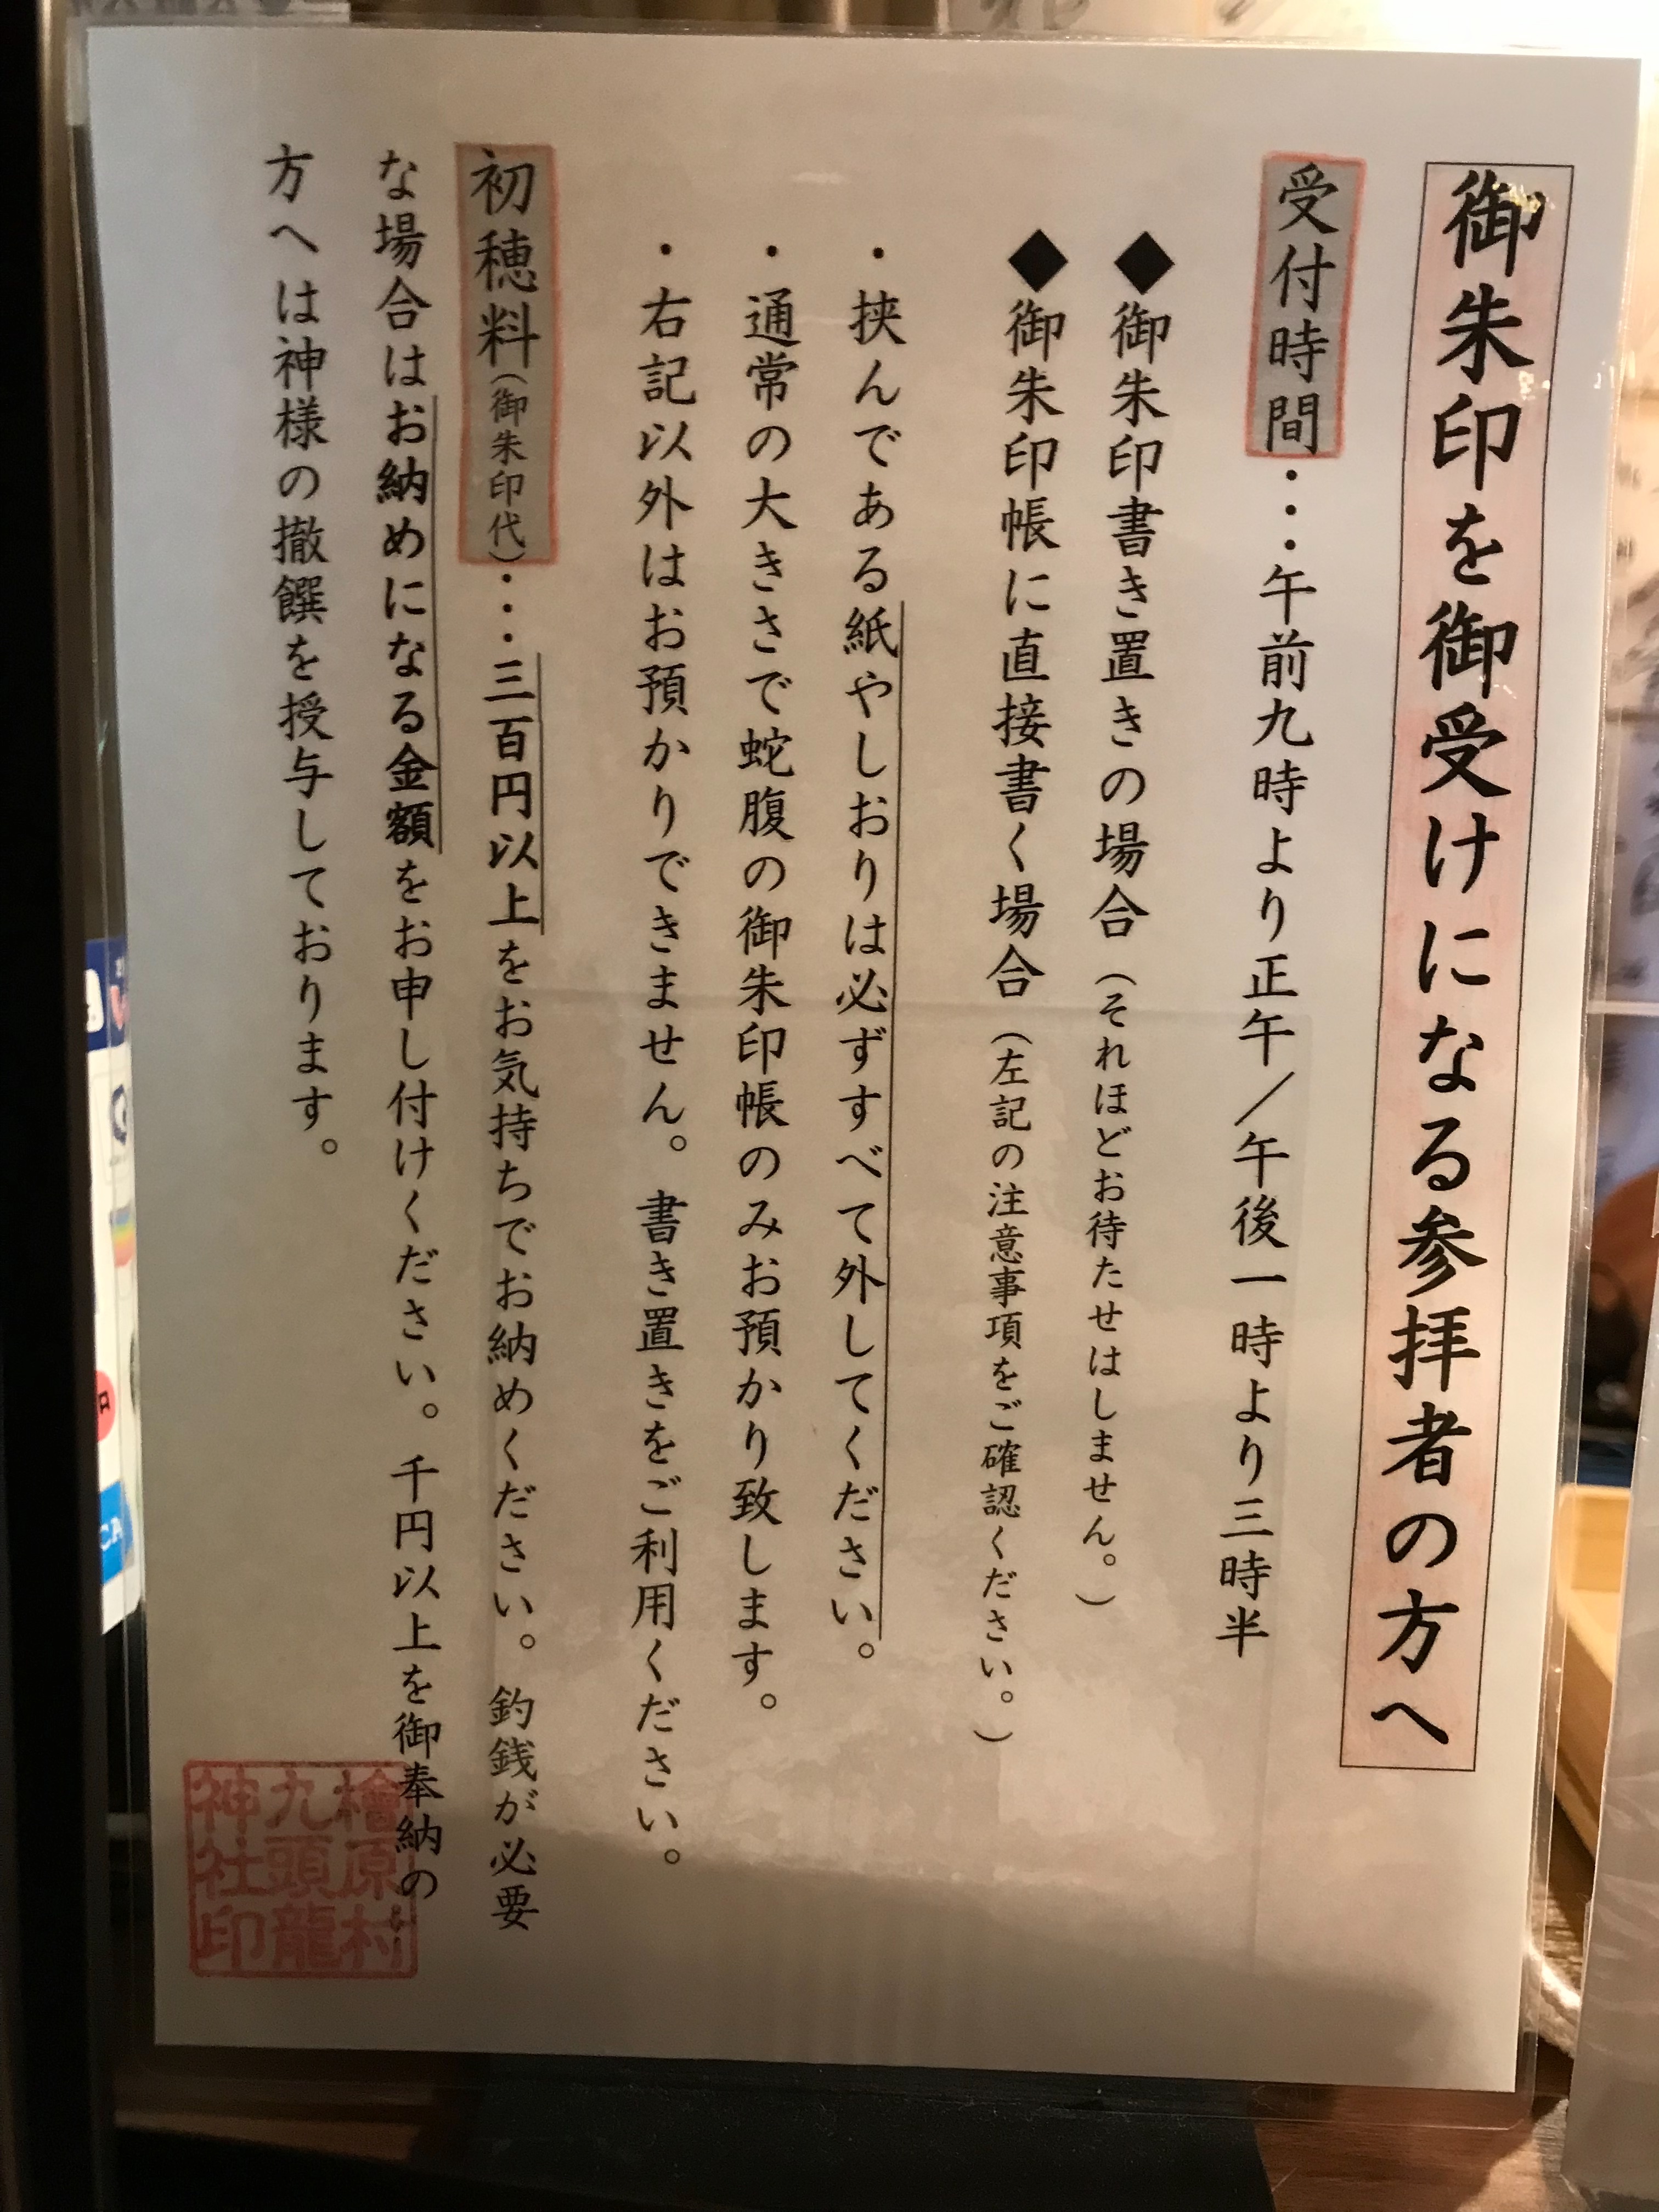 御朱印を御受けになる参拝者の方へ
受付時間・・・午前九時より正午／午後一時より三時半
◆御朱印書き置きの場合（それほどお待たせはしません。）
◆御朱印帳に直接書く場合（左記の注意事項をご確認ください。）
・挟んである紙やしおりは必ずすべて外してください。
・通常の大きさで蛇腹の御朱印帳のみお預かり致します。
・右記以外はお預かりできません。書き置きをご利用ください。
初穂料（御朱印代）・・・三百円以上をお気持ちでお納めください。釣銭が必要
な場合はお納めになる金額をお申し付けください。千円以上を御奉納の
方へは神様の撤饌を授与しております。
檜原村
九頭龍
神社印